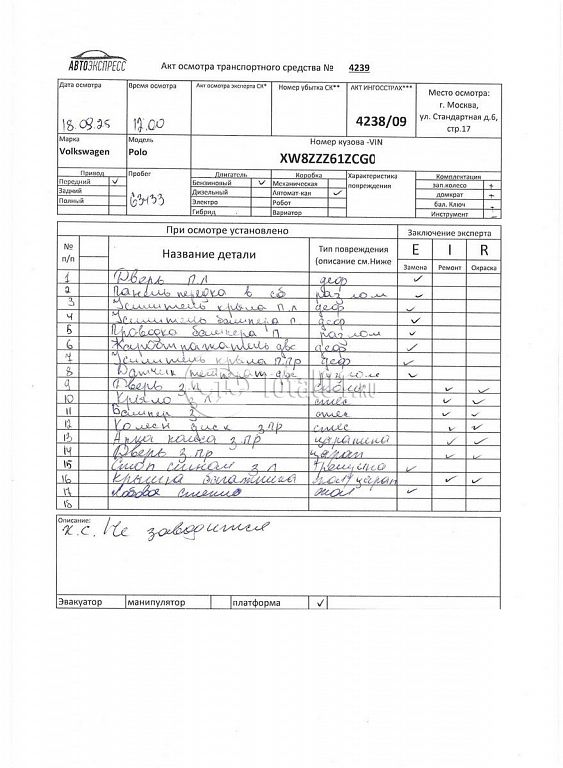 АВТОЭКСПРЕСС
Акт осмотра транспортного средства № 4239
Дата осмотра Время осмотра Акт осмотра эксперта СК* Номер убытка СК** АКТ ИНГОССТРАХ*** Место осмотра:
г. Москва,
ул. Стандартная д.6,
стр.17
18.09.25 12.00 4238/09
Марка Модель Номер кузова -VIN
Volkswagen Polo XW8ZZZ61ZCG0
Привод Пробег Двигатель Коробка Характеристика повреждения Комплектация
Передний ✓ Бензиновый ✓ Механическая зап.колесо +
Задний Дизельный Автомат-кая ✓ домкрат +
Полный 63133 Электро Робот бал. Ключ +
Гибрид Вариатор Инструмент -
При осмотре установлено Заключение эксперта
№ п/п Название детали Тип повреждения (описание см.Ниже E I R
Замена Ремонт Окраска
1 Дверь п.л деф ✓
2 Панель передка в сб разлом ✓
3 Усилитель крыла п.л деф ✓
4 Усилитель бампера п деф ✓
5 Проводка бампера п. разлом ✓
6 деф ✓
7 Усилитель крыла п.пр деф ✓
8 Датчик ✓
9 Дверь з.л ✓ ✓
10 Крыло з.л ✓ ✓
11 Бампер з ✓ ✓
12 Колесн диск з.пр ✓ ✓
13 Арка з.пр царапина ✓ ✓
14 Дверь з.пр царап ✓ ✓
15 Стоп сигнал з л ✓
16 Крышка багажника царап ✓ ✓
17 Лобовое стекло скол ✓
18
Описание:
к.с. Не заводится
Эвакуатор манипулятор платформа ✓